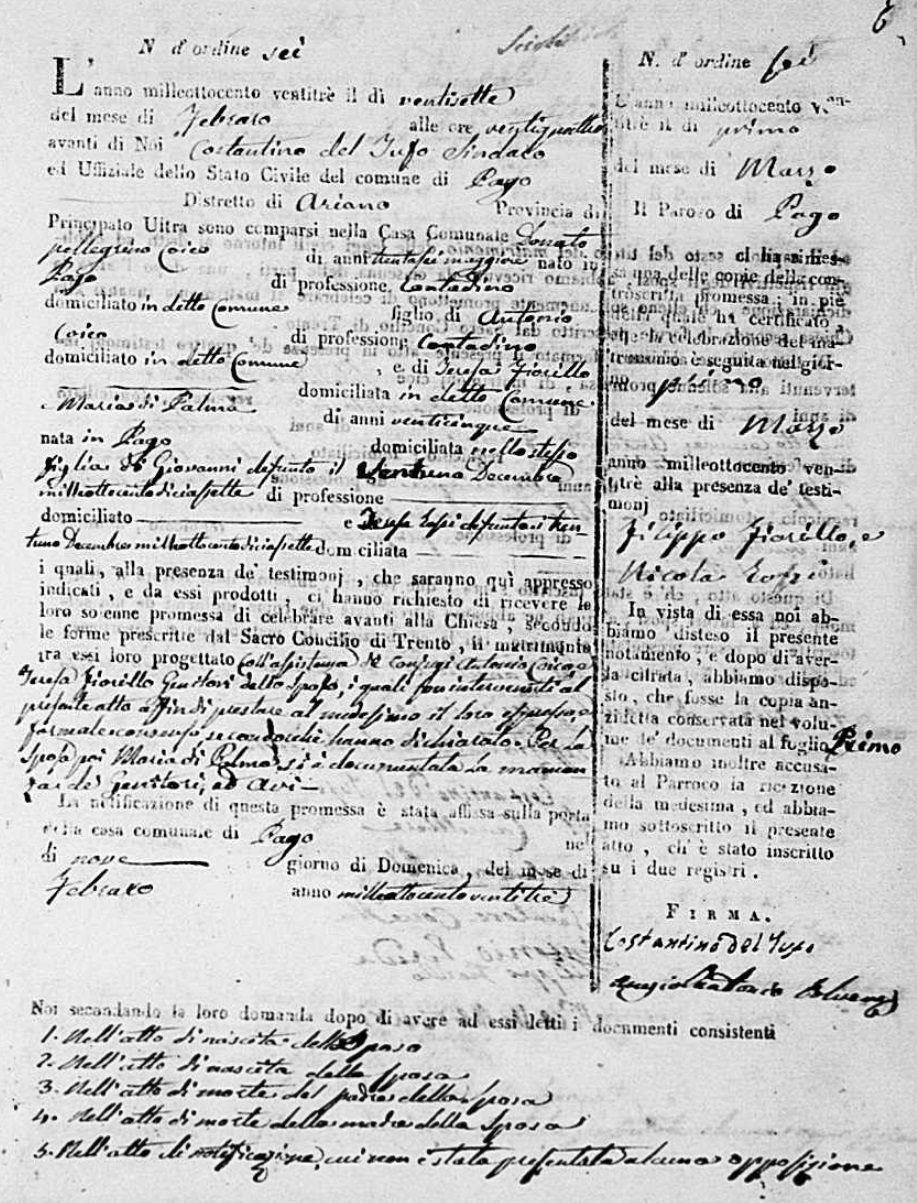 6
N d'ordine sei
L'anno milleottocento ventitrè il dì ventisette
del mese di Febraro alle ore ventiquattro
avanti di Noi Costantino del Tufo Sindaco
ed Uffiziale dello Stato Civile del comune di Pago
Distretto di Ariano Provincia di
Principato Ultra sono comparsi nella Casa Comunale Donato
pellegrino Coico di anni trentasei maggiore nato in
Pago di professione Contadino
domiciliato in detto Comune figlio di Antonio
Coico di professione Contadino
domiciliato in detto Comune, e di Teresa Fiorillo
domiciliata in detto Comune
Maria di Palma di anni venticinque
nata in Pago domiciliata nello stesso
figlia di Giovanni defunto il Decembre
milleottocentodiciassette di professione
domiciliato e Teresa defunta i tren-
tuno Decembre milleottocentodiciassette domiciliata
i quali, alla presenza de' testimonj, che saranno quì appresso
indicati, e da essi prodotti, ci hanno richiesto di ricevere la
loro solenne promessa di celebrare avanti alla Chiesa, secondo
le forme prescritte dal Sacro Concilio di Trento, il matrimonio
tra essi loro progettato coll'assistenza de conjugi Antonio Coico, e
Teresa Fiorillo Genitori dello Sposo, i quali son intervenuti al
presente atto affin di prestare al medesimo il loro espresso, e
formale consenso secondocchè hanno dichiarato. Per la
Sposa poi Maria di Palma si è documentata la mancan
za de' Genitori, ed Avi
La notificazione di questa promessa è stata affissa sulla porta
della casa comunale di Pago nel
di nove giorno di Domenica, del mese di
Febraro anno milleottocento ventitrè
N. d'ordine sei
L'anno milleottocento ven-
titrè il di primo
del mese di Marzo
Il Paroco di Pago
ci ha rimes-
sa una delle copie della con-
troscritta promessa; in piè
della quale ha certificato,
che la celebrazione del ma-
trimonio è seguita nel gior-
no primo
del mese di Marzo
anno milleottocento ven-
titrè alla presenza de' testi-
monj
Filippo Fiorillo, e
Nicola
In vista di essa noi ab-
biamo disteso il presente
notamento, e dopo di aver-
la cifrata, abbiamo dispo-
sto, che fosse la copia an-
zidetta conservata nel volu-
me de' documenti al foglio Primo
Abbiamo inoltre accusa-
to al Parroco la ricezione
della medesima, ed abbia-
mo sottoscritto il presente
atto, ch'è stato inscritto
su i due registri.
FIRMA.
Costantino del Tufo
Noi secondando la loro domanda dopo di avere ad essi letti i documenti consistenti
1. Nell'atto di nascita dello Sposo
2. Nell'atto di nascita della sposa
3. Nell'atto di morte del padre della sposa
4. Nell'atto di morte della madre della Sposa
5. Nell'atto di notificazione, cui non è stata presentata alcuna opposizione